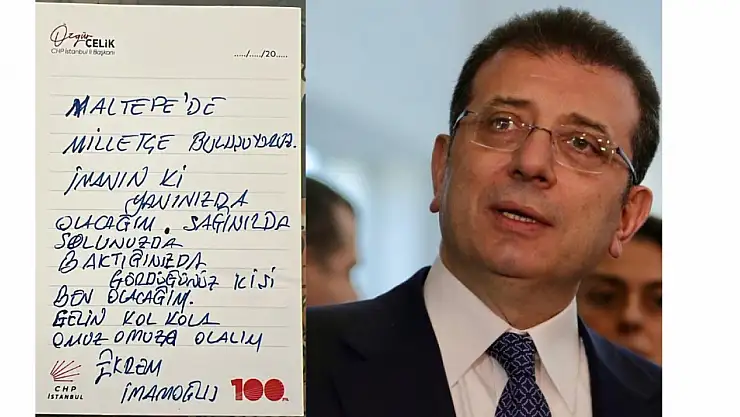 Özgür
ÇELİK
CHP İstanbul İl Başkanı
...../...../20.....
MALTEPE'DE
MİLLETÇE BULUŞUYORUZ.
İNANIN Kİ
YANINIZDA
OLACAĞIM. SAĞINIZDA
SOLUNUZDA
BAKTIĞINIZDA
GÖRDÜĞÜNÜZ KİŞİ
BEN OLACAĞIM.
GELİN KOL KOLA
OMUZ OMUZA OLALIM
EKREM
İMAMOĞLU
CHP
İSTANBUL
100.